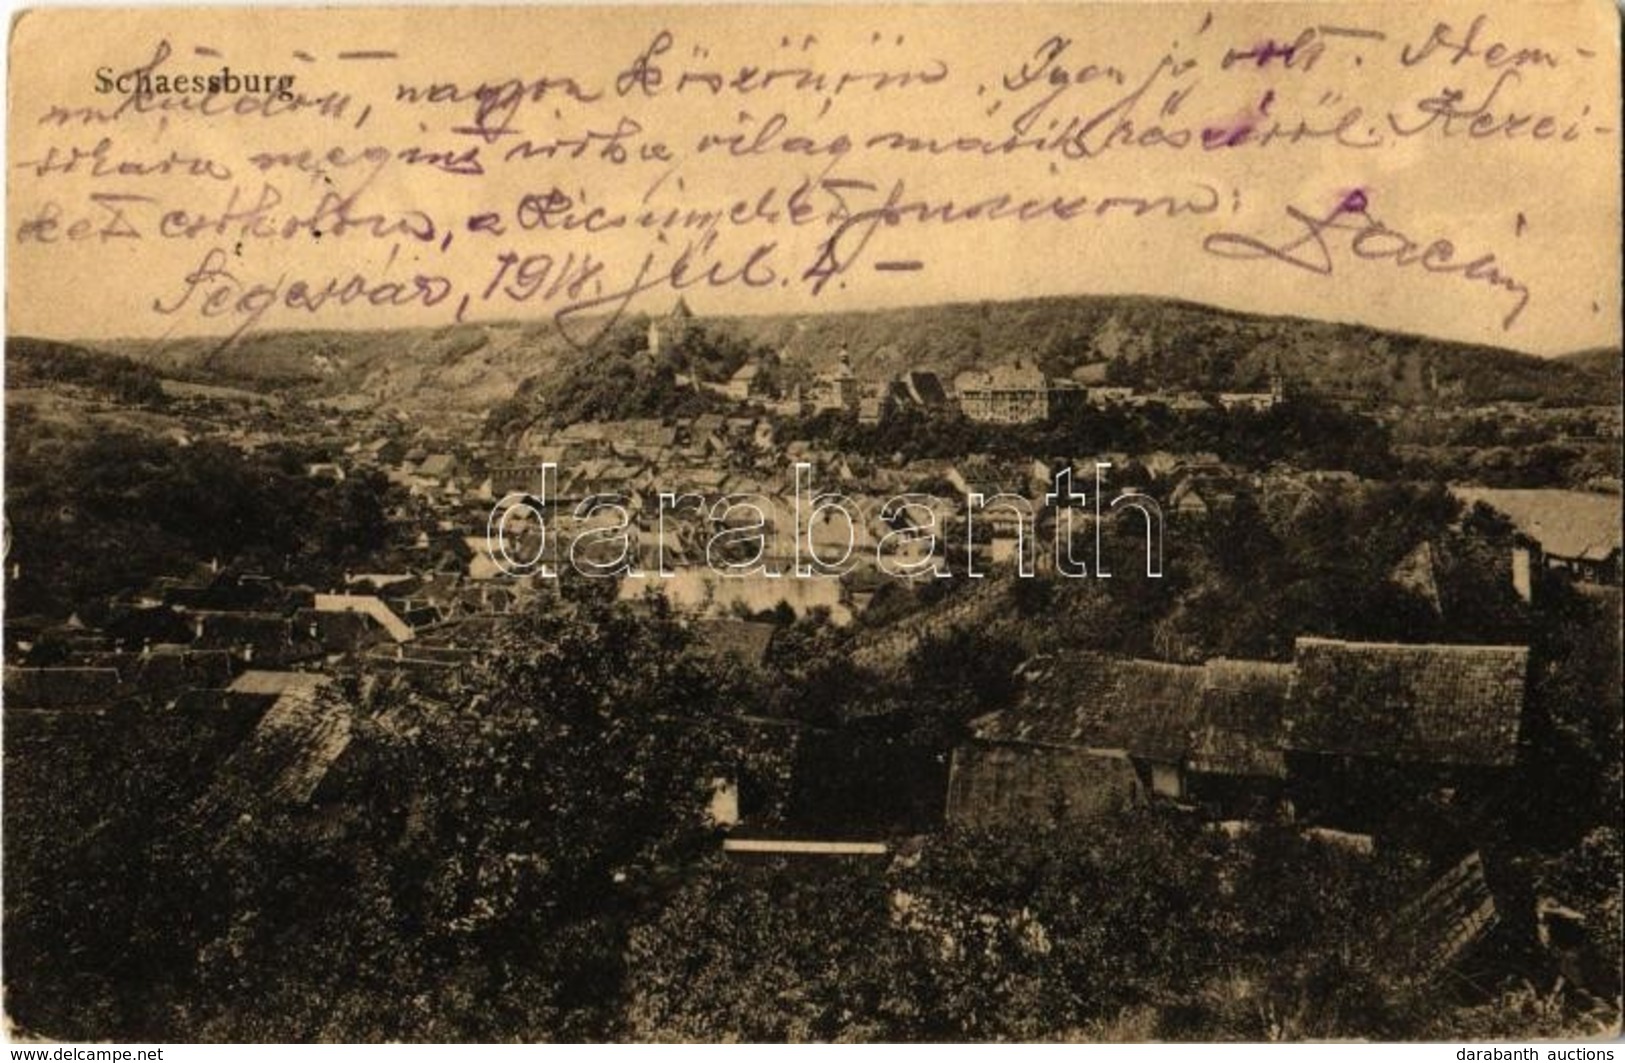 Schaessburg
küldött, nagyon köszönöm. Igen jó volt. Nem-
sokára megint irok a világ másik részéről. Kezei-
ket csókolom, a kicsinyeket puszizom:
Laci
Segesvár, 1918. júl. 4. –
darabanth
www.delcampe.net
darabanth auctions